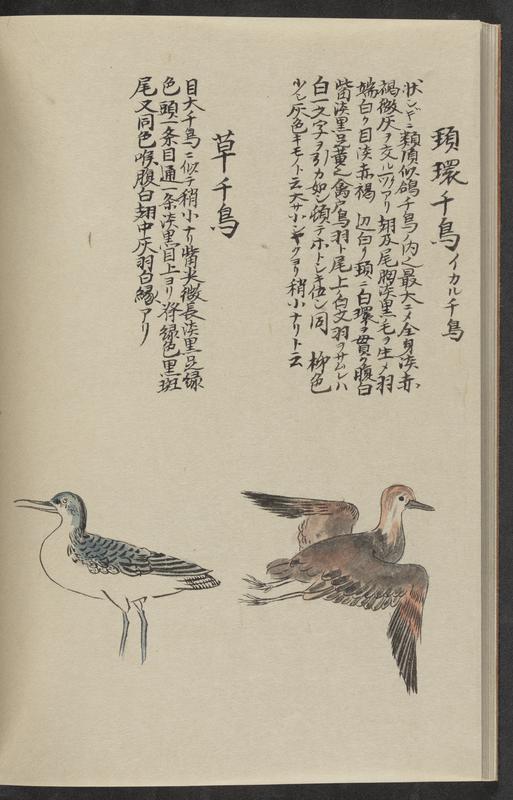 頚環千鳥 イカル千鳥
状シギニ類頂似鴿千鳥ノ内之最大ニメ全身淡赤
褐微灰ヲ交ル アリ 翅及尾胸淡黒毛ヲ生メ羽
端白ク目淡赤褐 辺白ク頚ニ白環ヲ貫ク腹白
觜淡黒足黄之 鳥羽ト尾上白文羽ヲサムレハ
白一文字ヲ引カ如シ 同 柳色
少シ灰色キモノト云大サ小シヤクヨリ稍小ナリト云
草千鳥
目大千鳥ニ似テ稍小ナリ觜尖微長淡黒足緑
色頭一条目通一条淡黒目上ヨリ 緑色黒斑
尾又同色喉腹白翅中灰羽白縁アリ